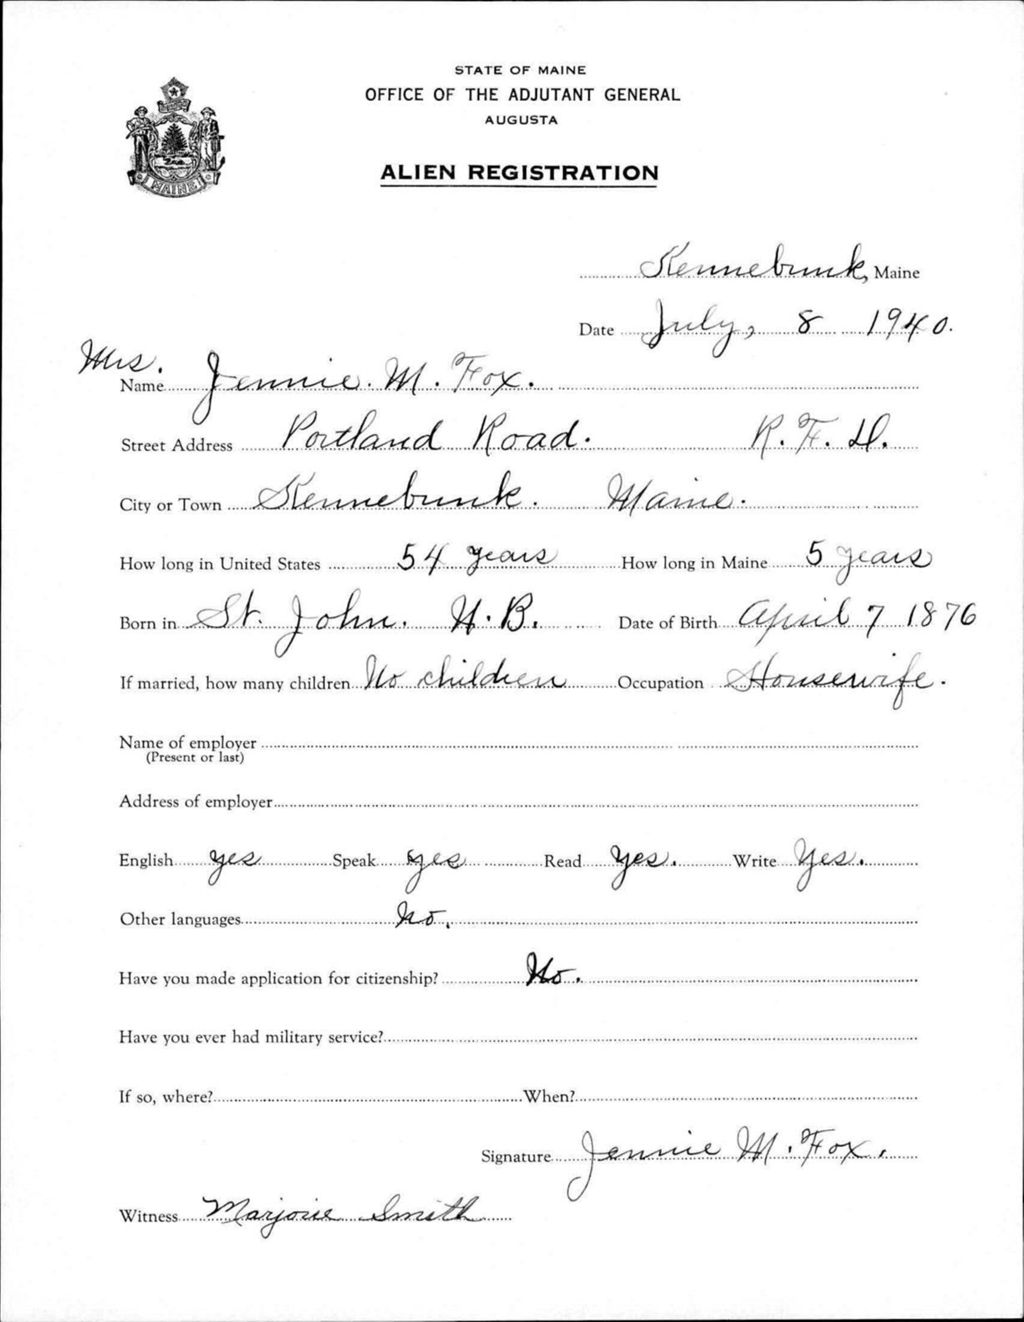 STATE OF MAINE
OFFICE OF THE ADJUTANT GENERAL
AUGUSTA
ALIEN REGISTRATION
MAINE
Kennebunk, Maine
Date July, 8 1940.
Mrs.
Name Jennie. M. Fox.
Street Address Portland Road. R. F. D.
City or Town Kennebunk. Maine.
How long in United States 54 years How long in Maine 5 years
Born in St. John. N. B. Date of Birth April 7 1876
If married, how many children No children Occupation Housewife.
Name of employer
(Present or last)
Address of employer
English yes Speak yes Read Yes. Write Yes.
Other languages No.
Have you made application for citizenship? No.
Have you ever had military service?
If so, where? When?
Signature Jennie M. Fox.
Witness Marjorie Smith